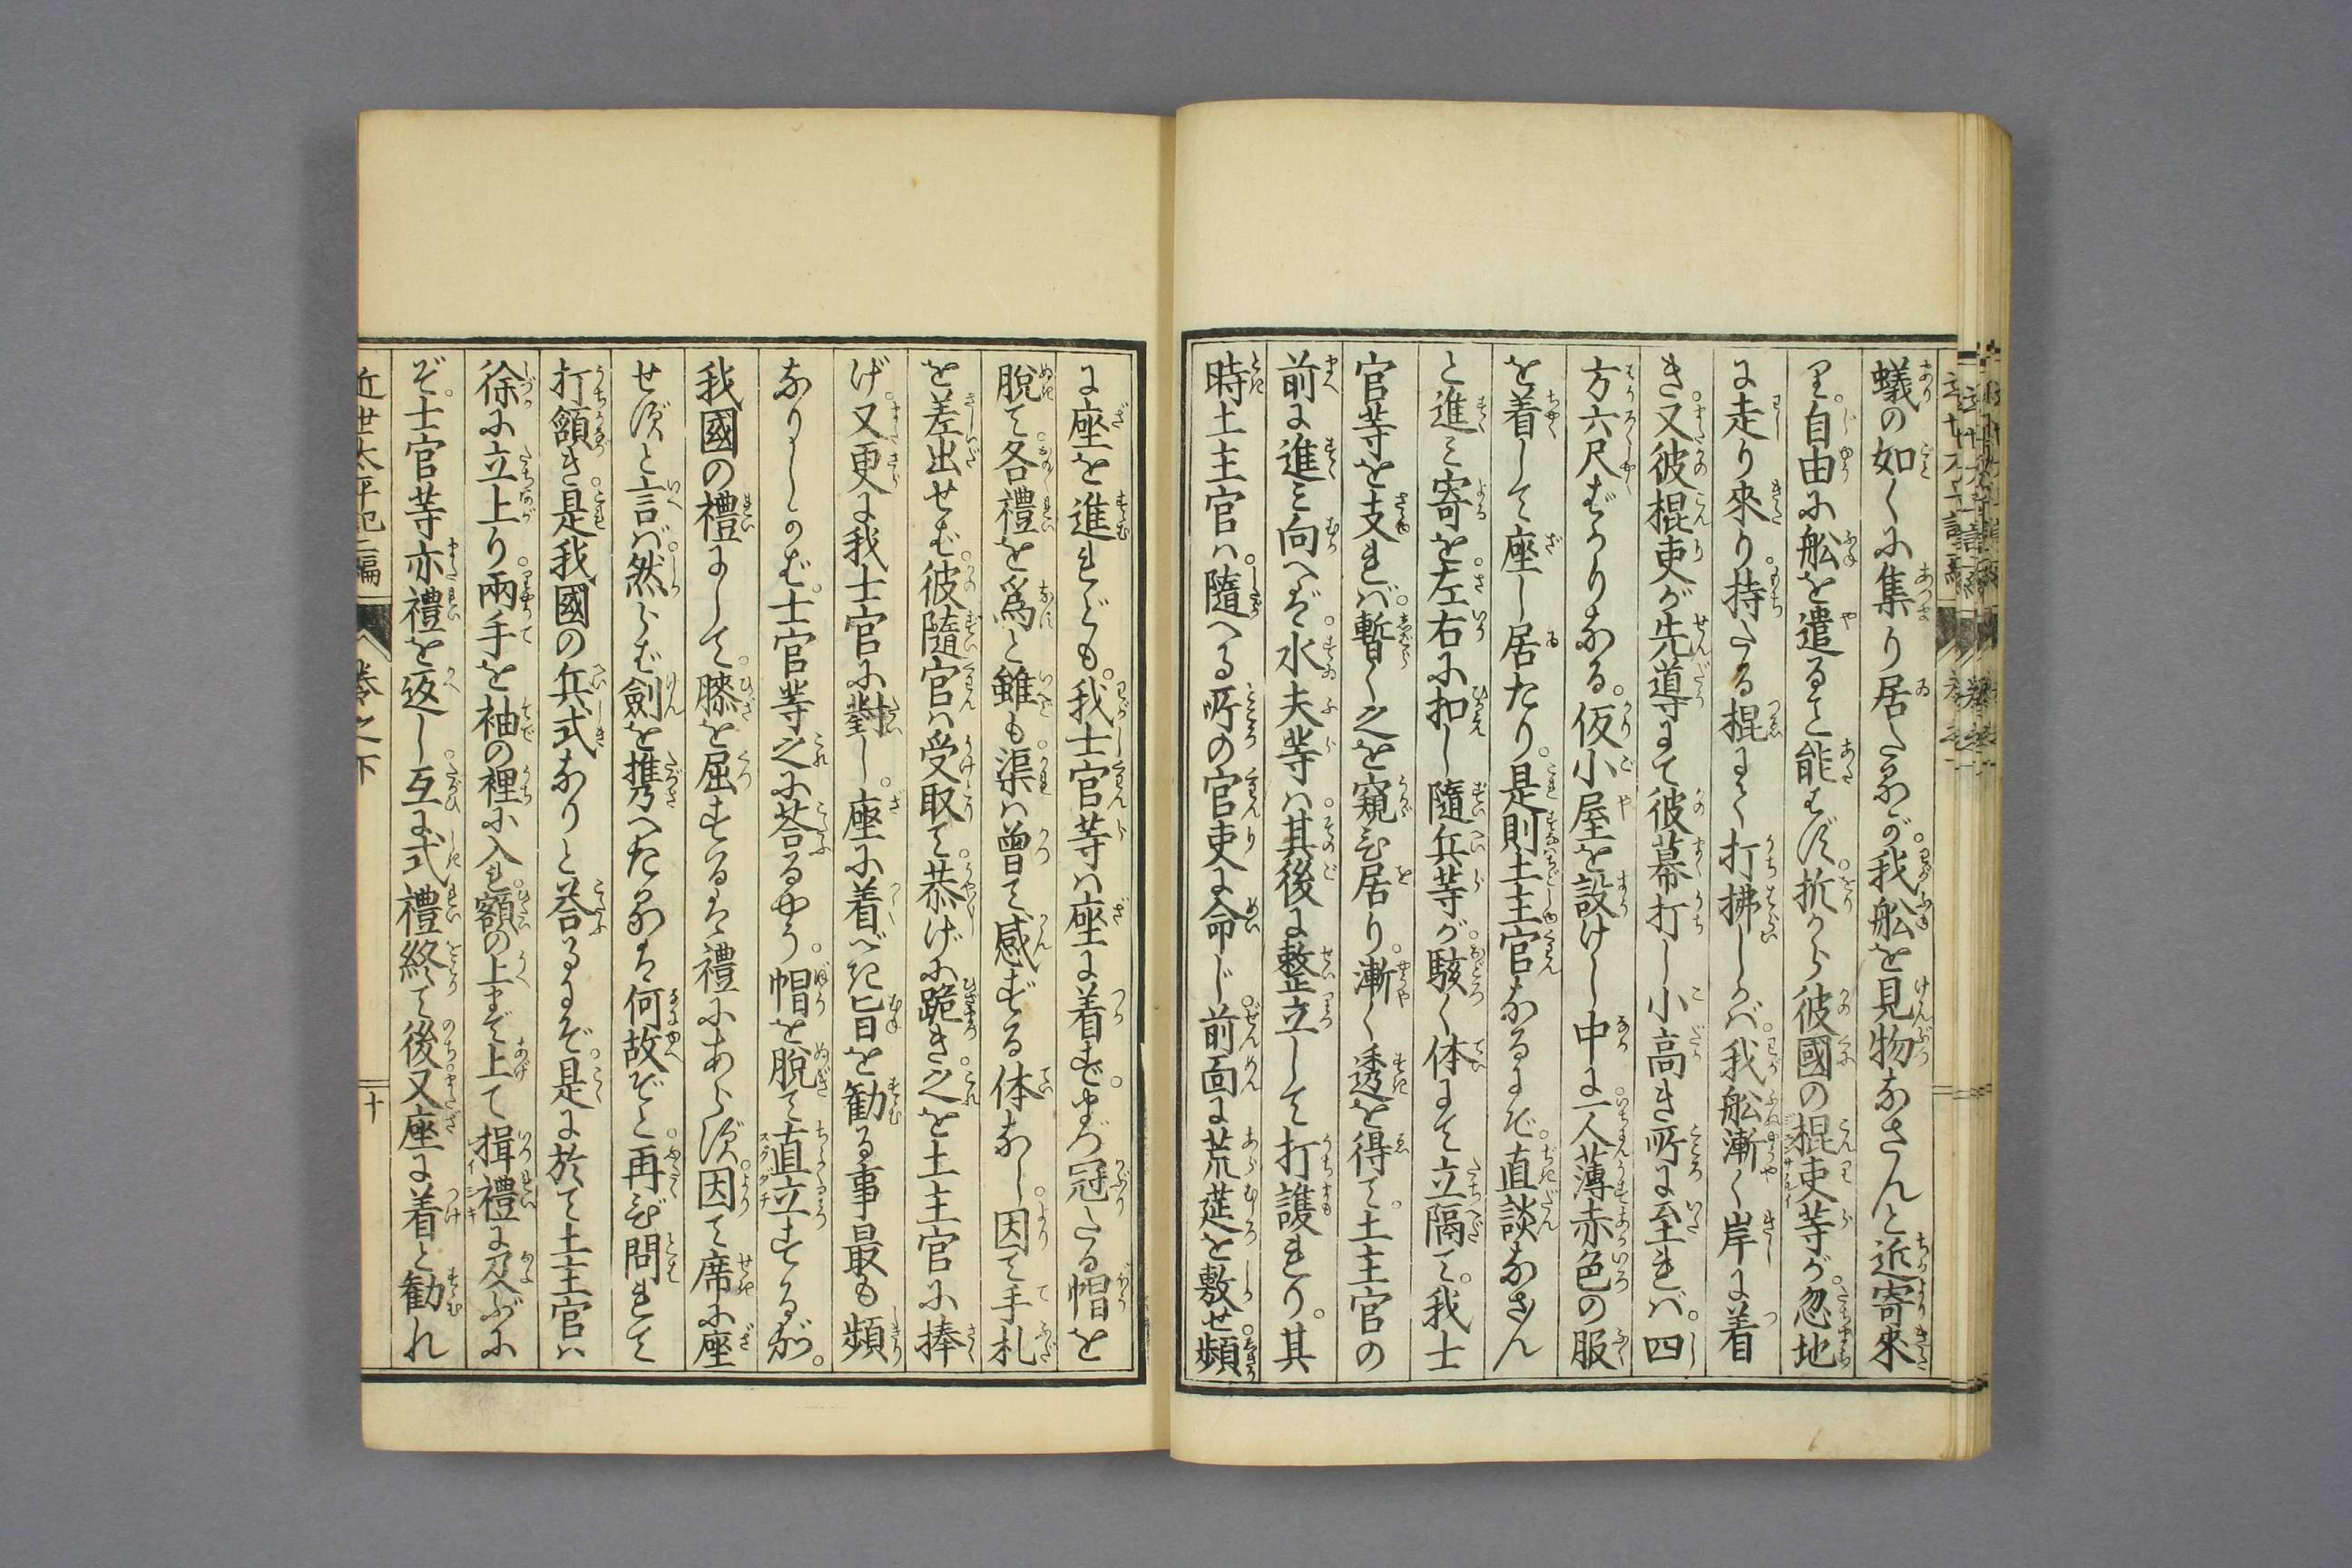 蟻の如くに集り居たるが。我舩を見物なさんと近寄來
り。自由に舩を遣ること能はず。折から彼國の棍吏等が。忽地
に走り來り。持たる棍にて打拂しかば。我舩漸く岸に着
き。又彼棍吏が先導にて彼幕打し小高き所に至れば。四
方六尺ばかりなる。仮小屋を設けし中に。一人薄赤色の服
を着して座し居たり。是則土主官なるにぞ。直談なさん
と進み寄を。左右に扣し隨兵等が。駭く体にて立隔て。我士
官等を支れば。暫く之を窺ひ居り。漸く透を得て。土主官の
前に進み向へば。水夫等は。其後に整立して打護れり。其
時土主官は。隨へる所の官吏に命じ。前面に荒莚を敷せ。頻
に座を進れども。我士官等は座に着ず。まづ冠たる帽を
脱て。各禮を爲と雖も。渠は曾て感ずる体なし。因て手札
を差出せば。彼隨官は受取て。恭げに跪き。之を土主官に捧
げ。又更に我士官に對し。座に着べき旨を勧る事最も頻
なりしかば。士官等之に荅るやう。帽を脱て直立するが。
我國の禮にして。膝を屈するは禮にあらず。因て席に座
せずと言ば。然らば劍を携へたるは何故ぞと。再び問れて
打額き。是我國の兵式なりと荅るにぞ。是に於て土主官は
徐に立上り。兩手を袖の裡に入れ。額の上まで上て揖禮に及ぶに
ぞ。士官等亦禮を返し。互に式禮終て後。又座に着と勧れ
近世太平記二編 巻之下 十